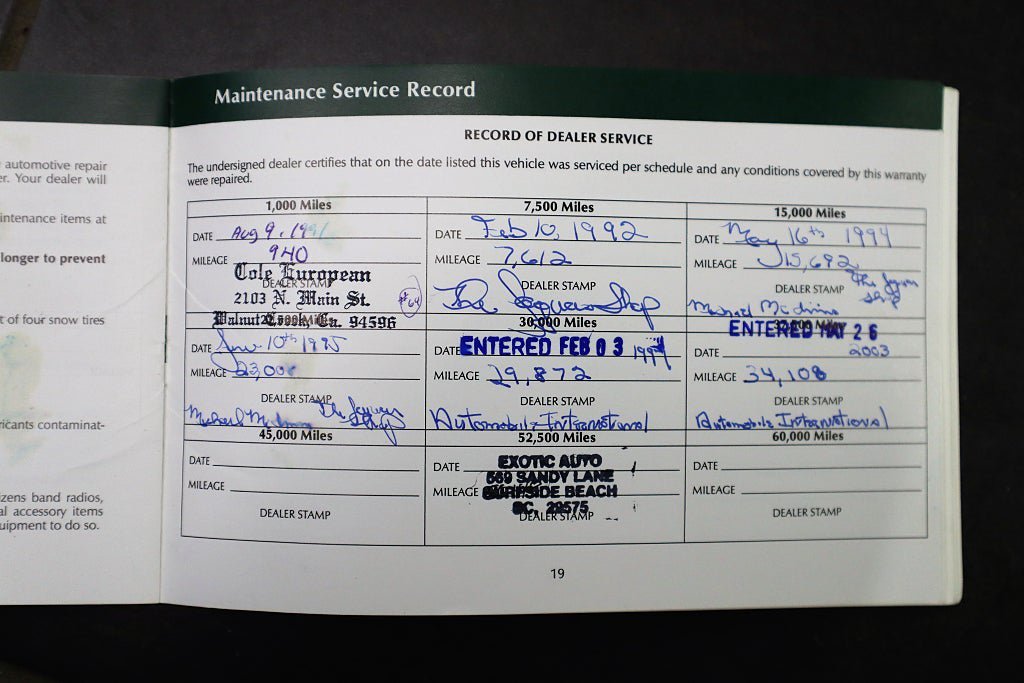 automotive repair
er. Your dealer will
intenance items at
longer to prevent
t of four snow tires
ricants contaminat-
zens band radios,
al accessory items
uipment to do so.
Maintenance Service Record
RECORD OF DEALER SERVICE
The undersigned dealer certifies that on the date listed this vehicle was serviced per schedule and any conditions covered by this warranty
were repaired.
1,000 Miles
DATE Aug 9, 1991
MILEAGE 940
DEALER STAMP
Cole European
2103 N. Main St.
Walnut Creek, Ca. 94596
7,500 Miles
DATE Feb 10, 1992
MILEAGE 7,612
DEALER STAMP
The Jaguar Shop
15,000 Miles
DATE May 16th 1994
MILEAGE 15,692
DEALER STAMP
The Jaguar
Shop
Michael
DATE 10th 1995
MILEAGE 23,000
DEALER STAMP
Michael The Jaguar
Shop
30,000 Miles
DATE ENTERED FEB 03
MILEAGE 29,872
DEALER STAMP
Automobile International
ENTERED MAY 26
DATE 2003
MILEAGE 34,108
DEALER STAMP
Automobile International
45,000 Miles
DATE
MILEAGE
DEALER STAMP
52,500 Miles
DATE
MILEAGE
DEALER STAMP
EXOTIC AUTO
669 SANDY LANE
SURFSIDE BEACH
SC. 29575
60,000 Miles
DATE
MILEAGE
DEALER STAMP
19